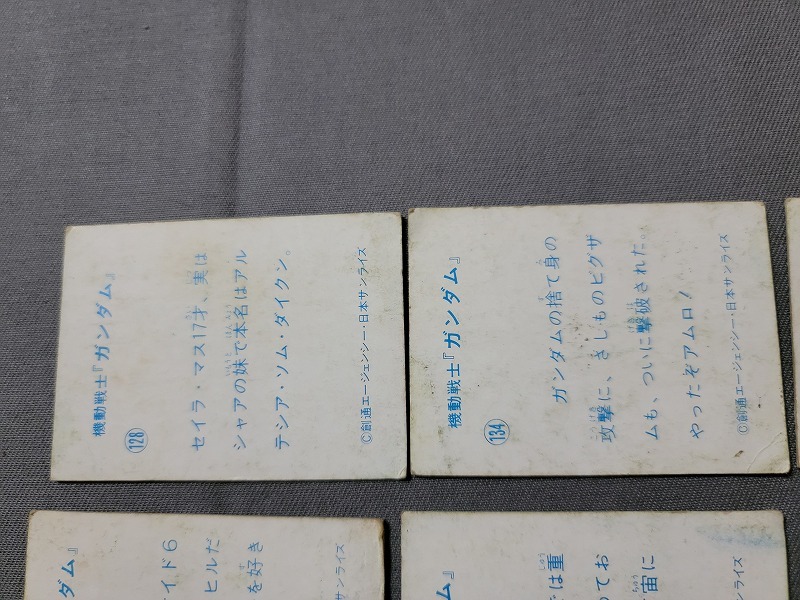 機動戦士『ガンダム』
128
セイラ・マス17才、実は
シャアの妹で本名はアル
テシア・ソム・ダイクン。
©創通エージェンシー・日本サンライズ
機動戦士『ガンダム』
134
ガンダムの捨て身の
攻撃に、さしものビグザ
ムも、ついに撃破された。
やったぞアムロ!
©創通エージェンシー・日本サンライズ
ダム』
イド6
ヒルだ
を好き
サンライズ
ム』
は重
てお
宙に
ライズ